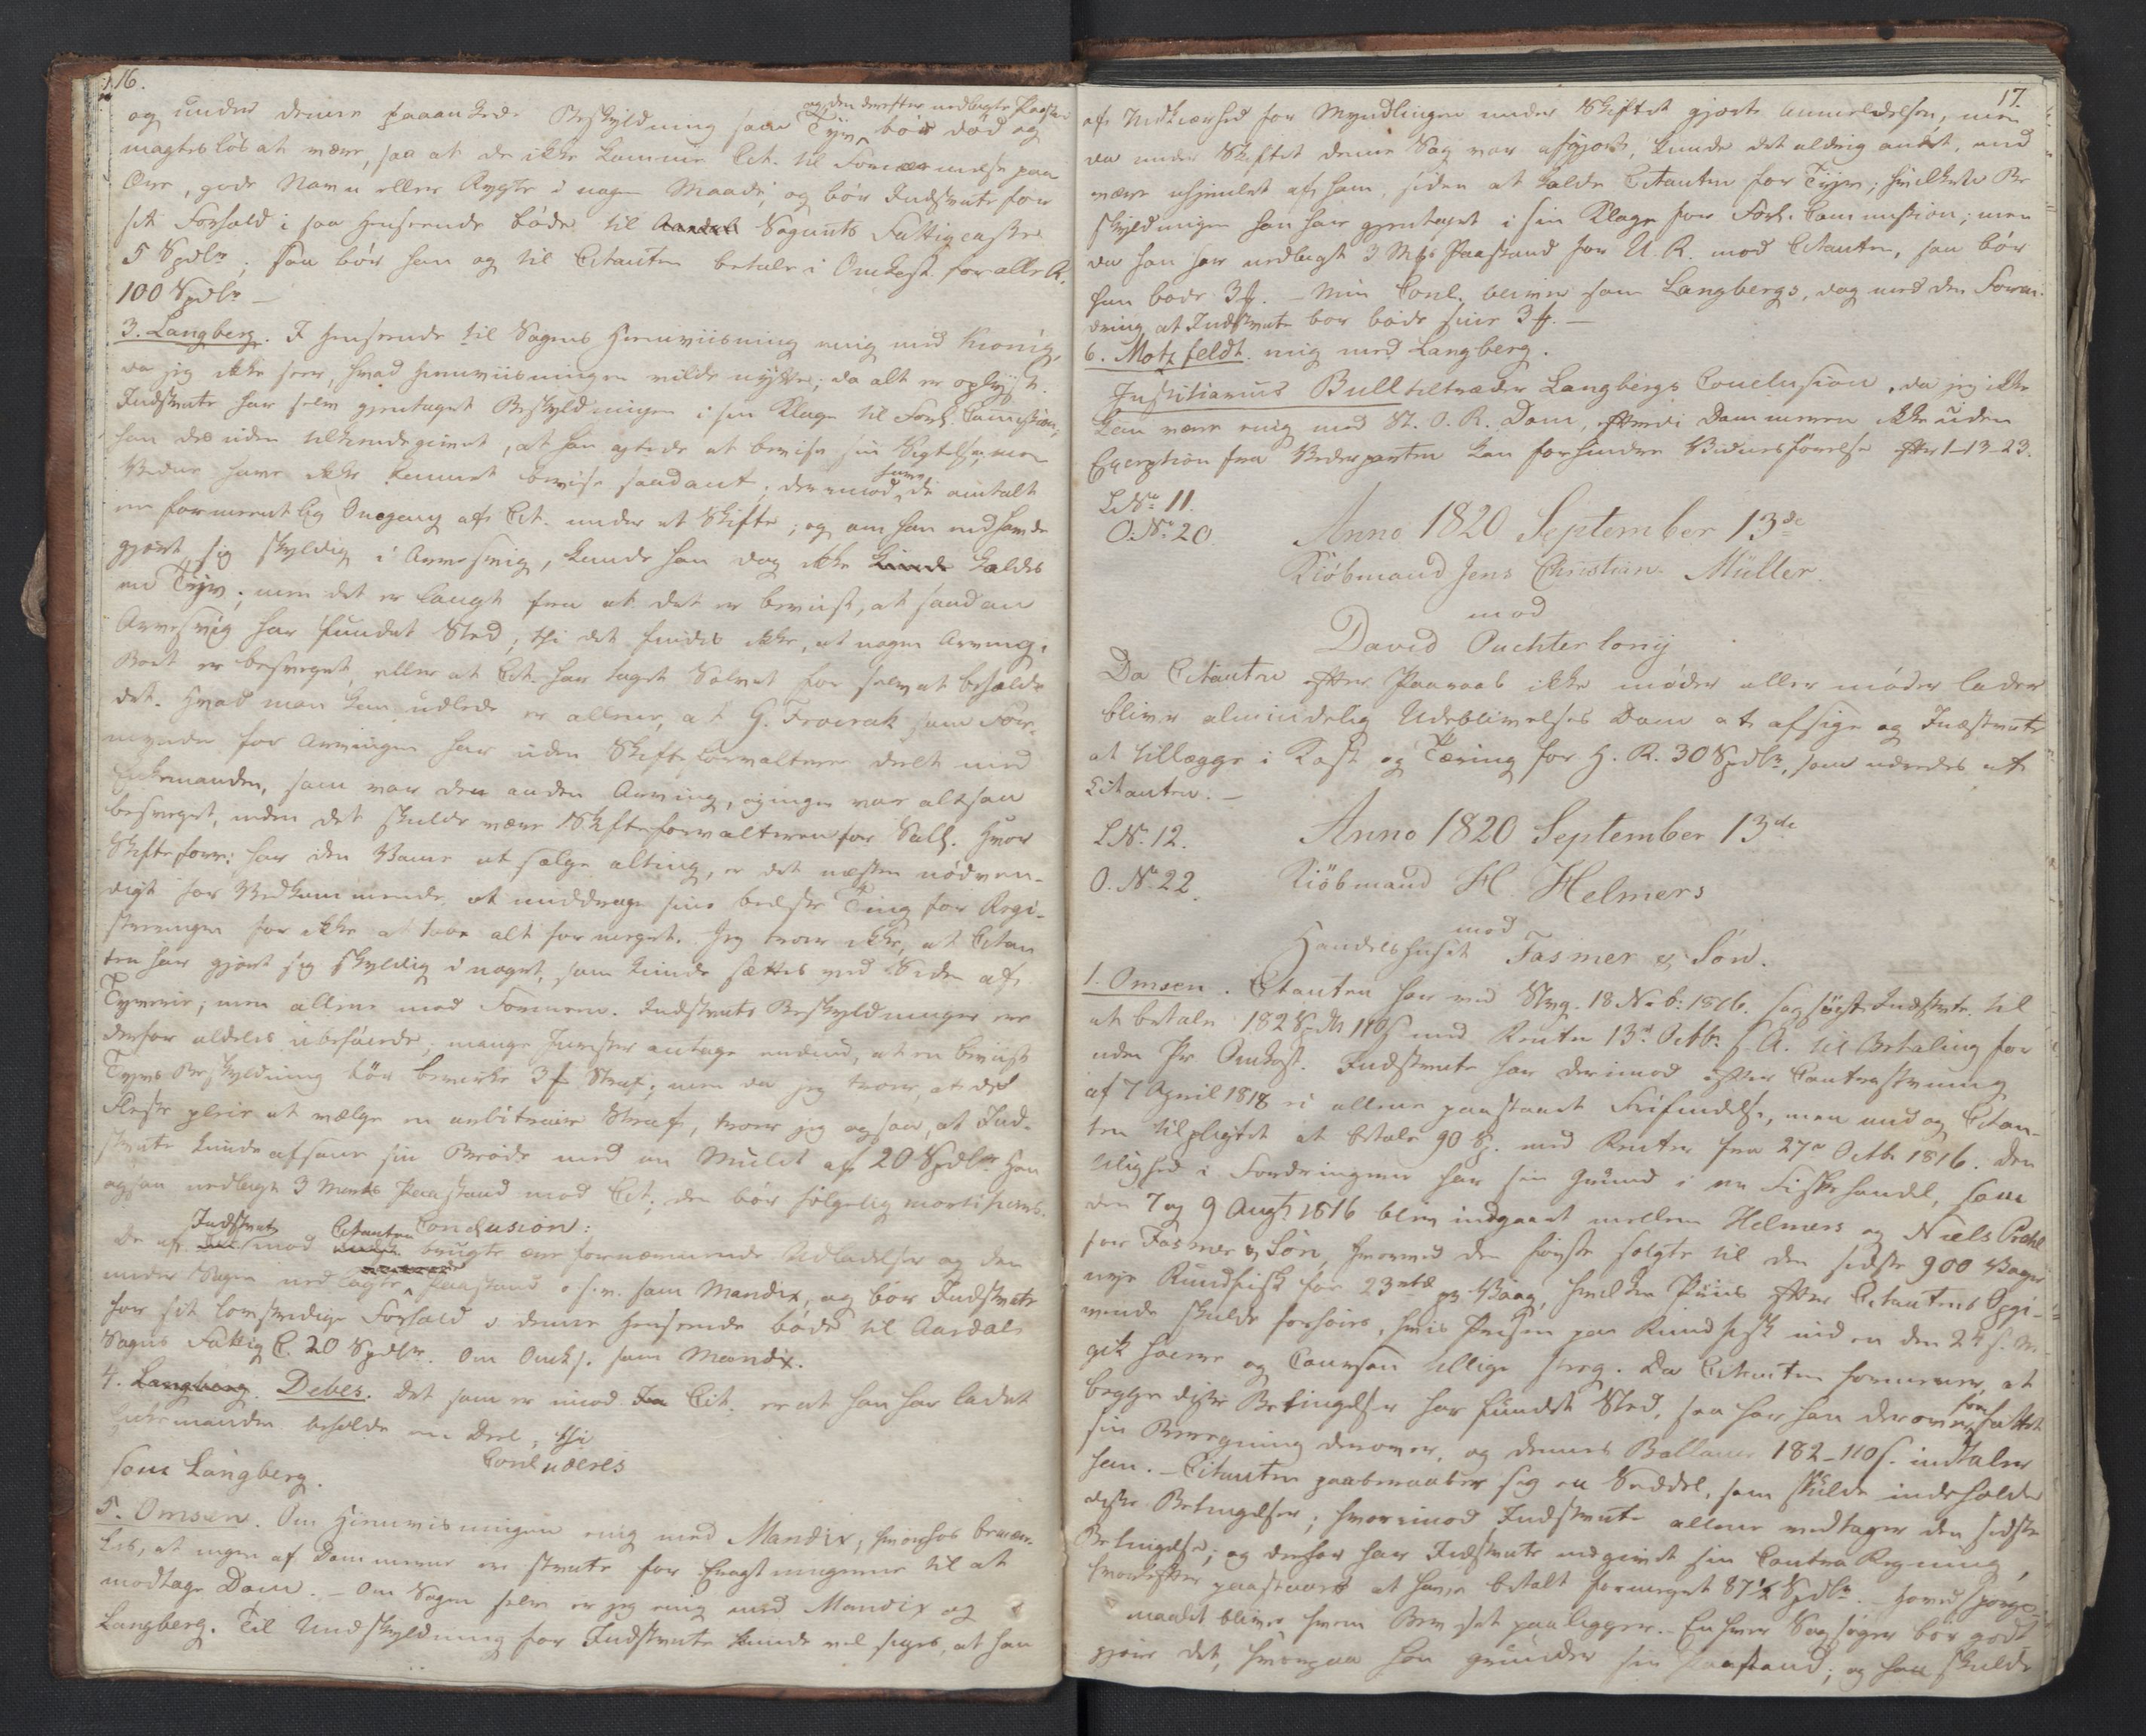 16.
og under denne paaankede Beskyldning som Tyv og den derefter nedlagte Paastand bör död og
magteslös at være, saa at de ikke komme Cit. til Fornærmelse paa
Ære, gode Navn eller Rygte i nogen Maade; og bör Indstevnte for
sit Forhold i saa Henseende böde til Aardals Sogns Fattigcasse
5 Spdlr; saa bör han og til Citanten betale i Omkost. for alle R.
100 Spdlr –
3. Langberg. I Henseende til Sagens Hiemviisning enig med Kionig,
da jeg ikke seer, hvad Hiemviisningen vilde nÿtte; da alt er oplÿst.
Indstevnte har selv gjentaget Beskyldningen i sin Klage til Forl. Comission,
han desuden tilkiendegivet, at han agtede at bevise sin Sigtelse, men
Vidner have ikke kunnet bevise saadant; derimod have de omtalt
en formeentlig Omgang af Cit. under et Skifte; og om han end havde
gjort sig skyldig i Arvesvig, kunde han dog ikke kaldes
en Tyv; men det er langt fra at det er beviist, at saadan
Arvesvig har fundet Sted, thi det findes ikke, at nogen Arving i
Boet er besveget, eller at Cit. har taget Sölvet for selv at beholde
det. Hvad man kan udlede er allene, at G. Fronrak som For-
mynder for Arvingen har uden Skifteforvalteren deelt med
Enkemanden, som var den anden Arving, og ingen var altsaa
besveget, uden det skulde være Skifteforvalteren for Sall. Hvor
Skifteforv: har den Vane at sælge alting, er det næsten nödven-
digt for Vedkommende, at unddrage sine bedste Ting for Regi-
streringen for ikke at tabe alt for meget. Jeg troer ikke, at Citan
ten har gjort sig skyldig i noget, som kunde sættes ved Siden af
Tyverie; men allene mod Formen. Indstevntes Beskyldninger ere
derfor aldeles ubeföiede; mange Jurister antage endnu, at en beviist
Tyvs Beskyldning bör bevirke 3 ƒ Straf; men da jeg troer, at det
fleste pleie at vælge en arbitrair Straf, troer jeg ogsaa, at Ind-
stevnte kunde afsone sin Bröde med en Mulct af 20 Spdlr. Han
ogsaa nedlagt 3 Marks Paastand mod Cit; den bör fölgelig mortificeres.
Conclusion:
De af Indstevnte mod Citanten brugte ære fornærmende Udladelser og den
under Sagen nedlagte Paastand o. s. v. som Mandix, og bör Indstevnte
for sit lovstridige Forhold i denne Henseende böde til Aardals
Sogns Fattig C. 20 Spdlr. Om Omk. som Mandix.
4. Debes. Det som er imod Cit. er at han har ladet
Enkemanden beholde en Deel, thi
Concluderes
som Langberg.
5. Omsen. Om Hiemvisningen enig med Mandix; hvorhos bemær-
kes, at ingen af Dommerne ere stevnte for Fragt ningerne til at
modtage Dom. – Om Sagen selv er jeg enig med Mandix og
Langberg. Til Undskyldning for Indstevnte kunde vel siges, at han
17.
af Nidkiærhed for Myndlingen under Skiftet gjorde Anmeldelsen, men
da under Skiftet denne Sag var afgjort, kunde det aldrig andet, end
være uhjemlet af ham, siden at kalde Citanten for Tyv; hvilken Be
skyldningen han har gjentaget i sin Klage for Forl. Commission; men
da han har nedlagt 3 Mks Paastand for U. R. mod Citanten, saa bör
han böde 3 ƒ. – Min Concl. bliver som Langbergs, dog med den Foran-
dring at Indstevnte bör böde sine 3 ƒ. –
6. Motzfeldt. enig med Langberg.
Justitiarius Bull tiltræder Langbergs Conclusion, da jeg ikke
kan være enig med St. O. R. Dom, efterdi Dommeren ikke uden
Exception fra Vederparten kan forhindre Vidnesförelse efter 1–13–23.
L. No 11.
O. No 20.
Anno 1820 September 13de
Kiöbmand Jens Christian Müller
mod
David Ouchterlony
Da Citanten efter Paaraab ikke möder eller möder lader
bliver almindelig Udeblivelses Dom at afsige og Indstevnte
at tillægge i Kost og Tæring for H. R. 30 Spdlr, som udredes af
Citanten. –
L. No. 12.
O. No. 22.
Anno 1820 September 13de
Kiöbmand H. Helmers
mod
Handelshuset Fasmer & Sön.
1. Omsen. Citanten har ved Stevn. 18 Nvb: 1816. sagsögt Indstevnte til
at betale 182 Spd 110 s med Renter 13de Octbr. s. A. til Betaling for
uden Pr. Omkost. Indstevnte har derimod efter Contrastevning
af 7 April 1818 ei allene paastaaet Frifindelse, men end og Citan-
ten tilpligtet at betale 90 S. med Renter fra 27de Octb. 1816. Den
Ulighed i Fordringerne har sin Grund i en Fiskehandel, som
den 7 og 9 Augt 1816 blev indgaaet mellem Helmers og Niels Prahl
for Fasmer & Sön, hvorved den förste solgte til den sidste 900 Voger
nye Rundfisk for 23 mk pr. Vaag, hvilken Priis efter Citantens Opgi-
vende skulde forhöies, hvis Prisen paa Rundfisk inden den 24 s. M.
gik höiere og Coursen tillige steg. Da Citanten formener, at
begge disse Betingelser har fundet Sted, saa har han derover forfattet
sin Beregning derover, og dennes Ballance 182–110 s. indtaler
han. – Citanten paaberaaber sig en Seddel, som skulde indeholde
disse Betingelser; hvorimod Indstevnte allene vedtager den sidste
Betingelse; og derfor har Indstevnte udgivet sin Contra Regning,
hvorefter paastaaes at have betalt formeget 87½ Spdlr. – Hovedspörgs-
maalet bliver, hvem Beviset paaligger. – Enhver Sagsöger bör godt
gjöre det, hvorpaa han grunder sin Paastand; og han skulde